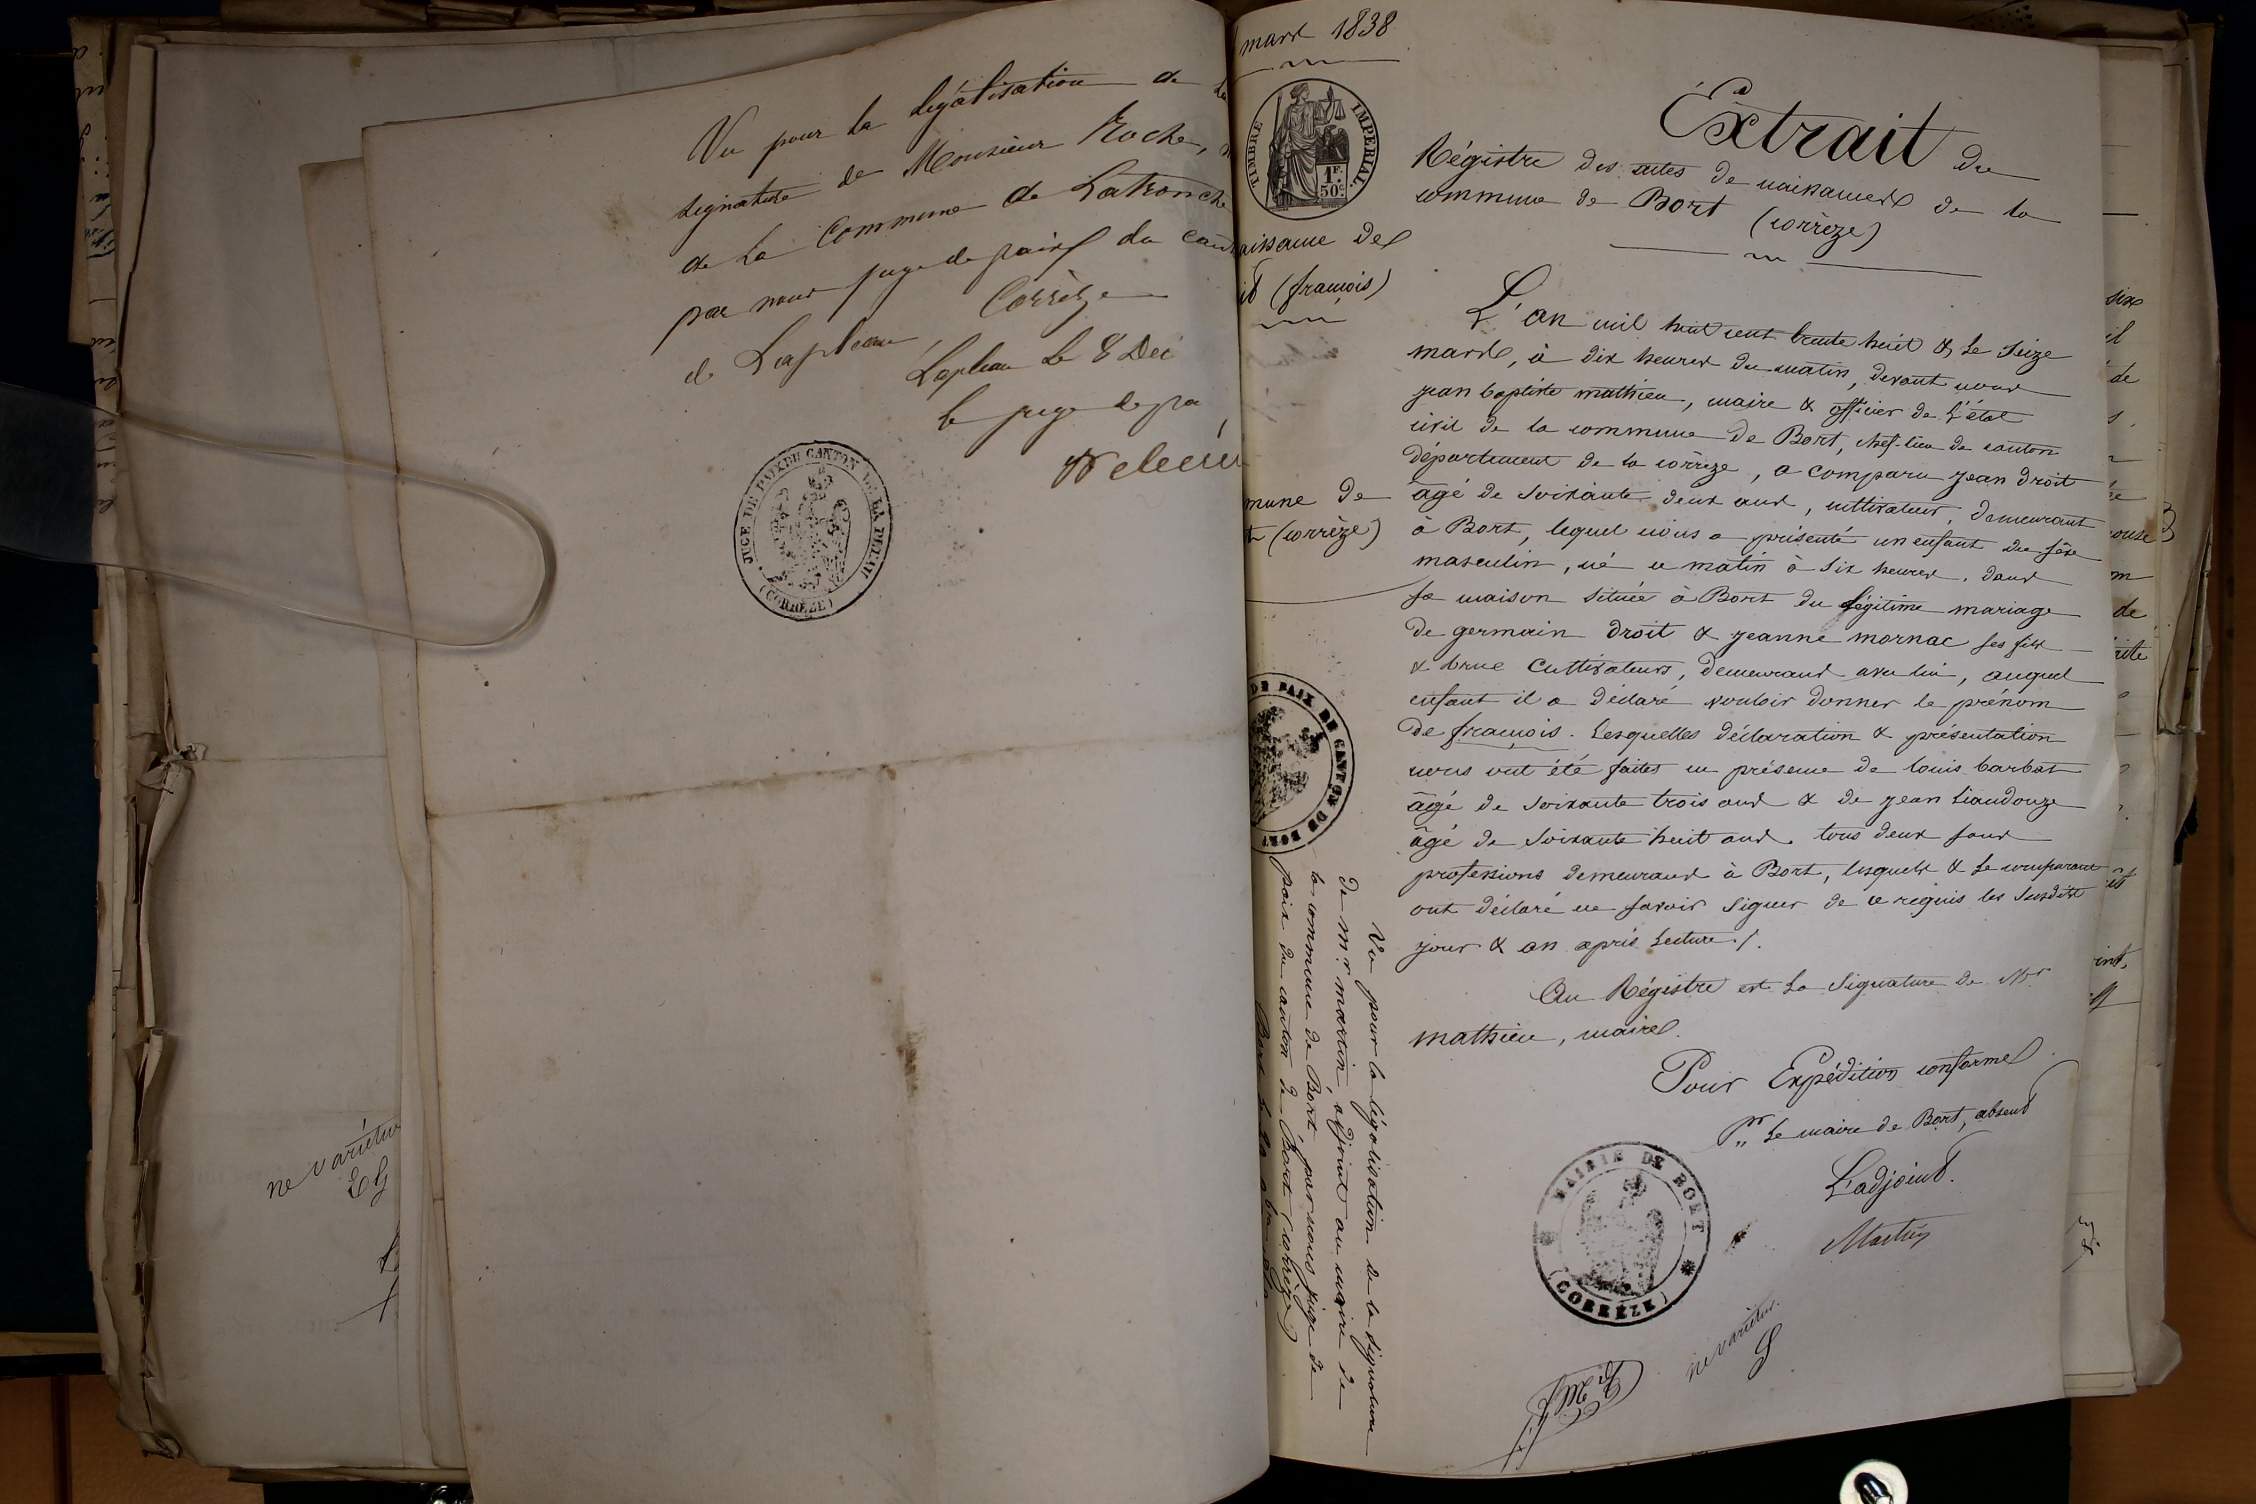 Vu pour la légalisation de la
signature de Monsieur Roche,
de la Commune de Latronche
par nous juge de paix du cant
de Lapleau, Corrèze
Lapleau le 8 Déc
le juge de pa
JUGE DE PAIX DU CANTON DE LAPLEAU
(CORRÈZE)
ne varietur
mars 1838
TIMBRE IMPERIAL.
1F.
50c.
aissance de
it (françois)
mune de
t (corrèze)
DE PAIX DE CANTON DE BORT
Vu pour la légalisation de la signature
de Mr martin, adjoint au maire de
la commune de Bort, par nous juge de
paix du canton de Bort (corrèze)
Bort le
Extrait du
Régistre des actes de naissances de la
commune de Bort (corrèze)
L'an mil huit cent trente huit & le seize
mars, à dix heures du matin, devant nous
jean baptiste mathieu, maire & officier de l'état
civil de la commune de Bort, chef-lieu de canton
département de la corrèze, a comparu jean droit
âgé de soixante deux ans, cultivateur, demeurant
à Bort, lequel nous a présenté un enfant du séxe
masculin, né ce matin à six heures, dans
sa maison située à Bort du légitime mariage
de germain droit & jeanne mornac ses fils
& brue cultivateurs, demeurans avec lui, auquel
enfant il a déclaré vouloir donner le prénom
de françois. Lesquelles déclaration & présentation
nous ont été faites en présence de louis barbat
âgé de soixante trois ans & de jean Liandouze
âgé de soixante huit ans. tous deux sans
professions demeurans à Bort, lesquels & le comparant
ont déclaré ne savoir signer de ce réquis les susdits
jour & an après lecture /.
Au Régistre est la signature de Mr
mathieu, maire.
Pour Expédition conforme
Pr le maire de Bort, absent
L'adjoint.
Martin
MAIRIE DE BORT
(CORRÈZE)
ne varietur.